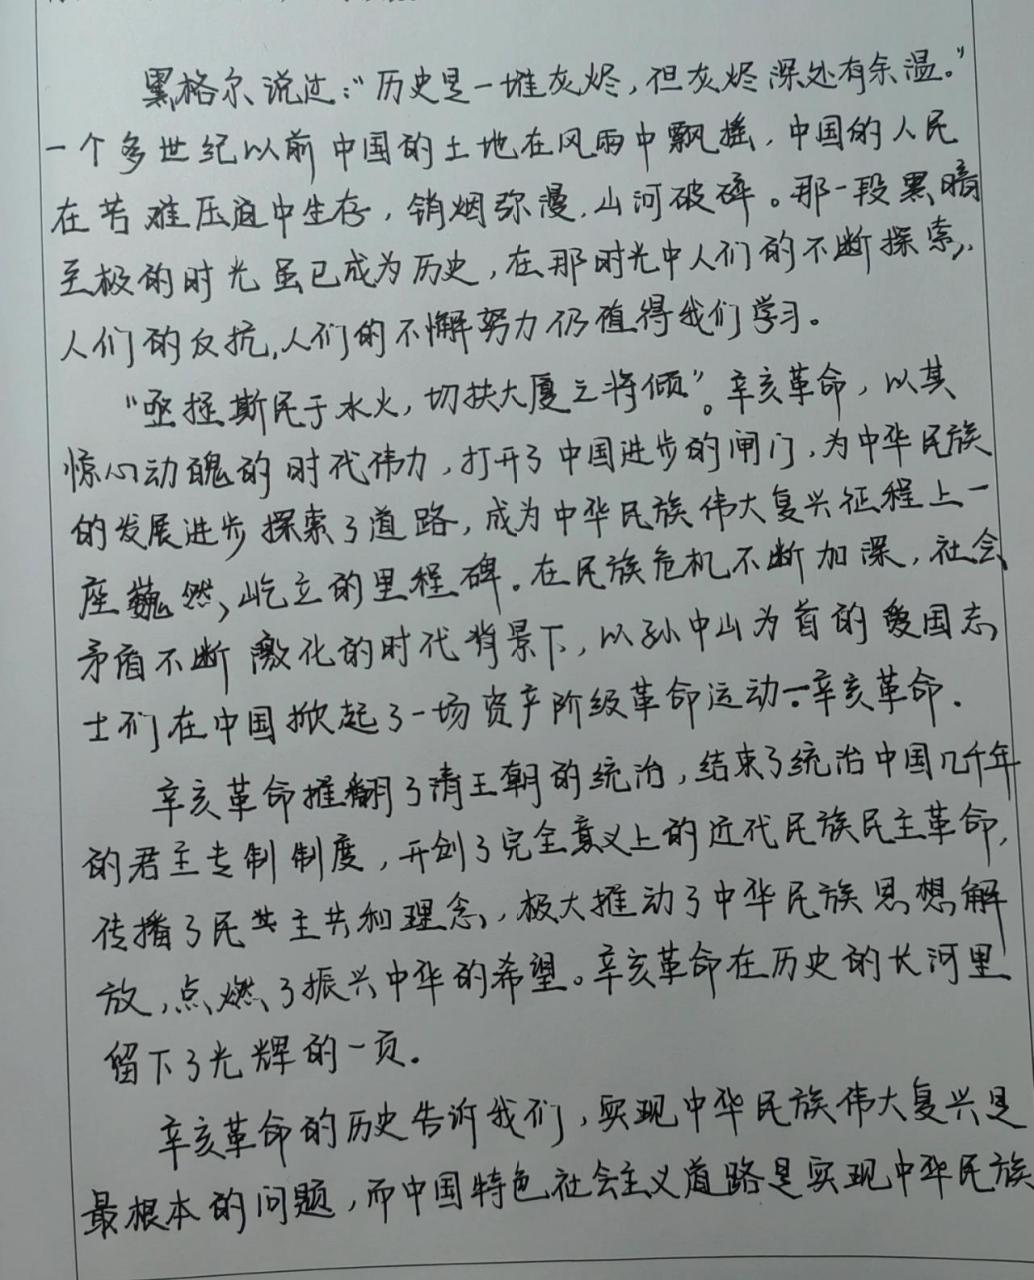 黑格尔说过：“历史是一堆灰烬，但灰烬深处有余温。”
一个多世纪以前中国的土地在风雨中飘摇，中国的人民
在苦难压迫中生存，销烟弥漫，山河破碎。那一段黑暗
至极的时光虽已成为历史，在那时光中人们的不断探索，
人们的反抗，人们的不懈努力仍值得我们学习。
“亟拯斯民于水火，切扶大厦之将倾”。辛亥革命，以其
惊心动魄的时代伟力，打开了中国进步的闸门，为中华民族
的发展进步探索了道路，成为中华民族伟大复兴征程上一
座巍然屹立的里程碑。在民族危机不断加深，社会
矛盾不断激化的时代背景下，以孙中山为首的爱国志
士们在中国掀起了一场资产阶级革命运动—辛亥革命.
辛亥革命推翻了清王朝的统治，结束了统治中国几千年
的君主专制制度，开创了完全意义上的近代民族民主革命，
传播了民主共和理念，极大推动了中华民族思想解
放，点燃了振兴中华的希望。辛亥革命在历史的长河里
留下了光辉的一页。
辛亥革命的历史告诉我们，实现中华民族伟大复兴是
最根本的问题，而中国特色社会主义道路是实现中华民族